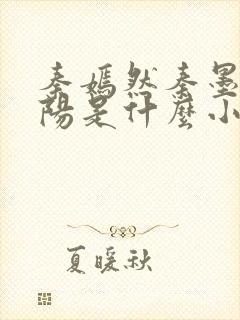 秦嫣然秦墨
陽是什麼小
夏暖秋